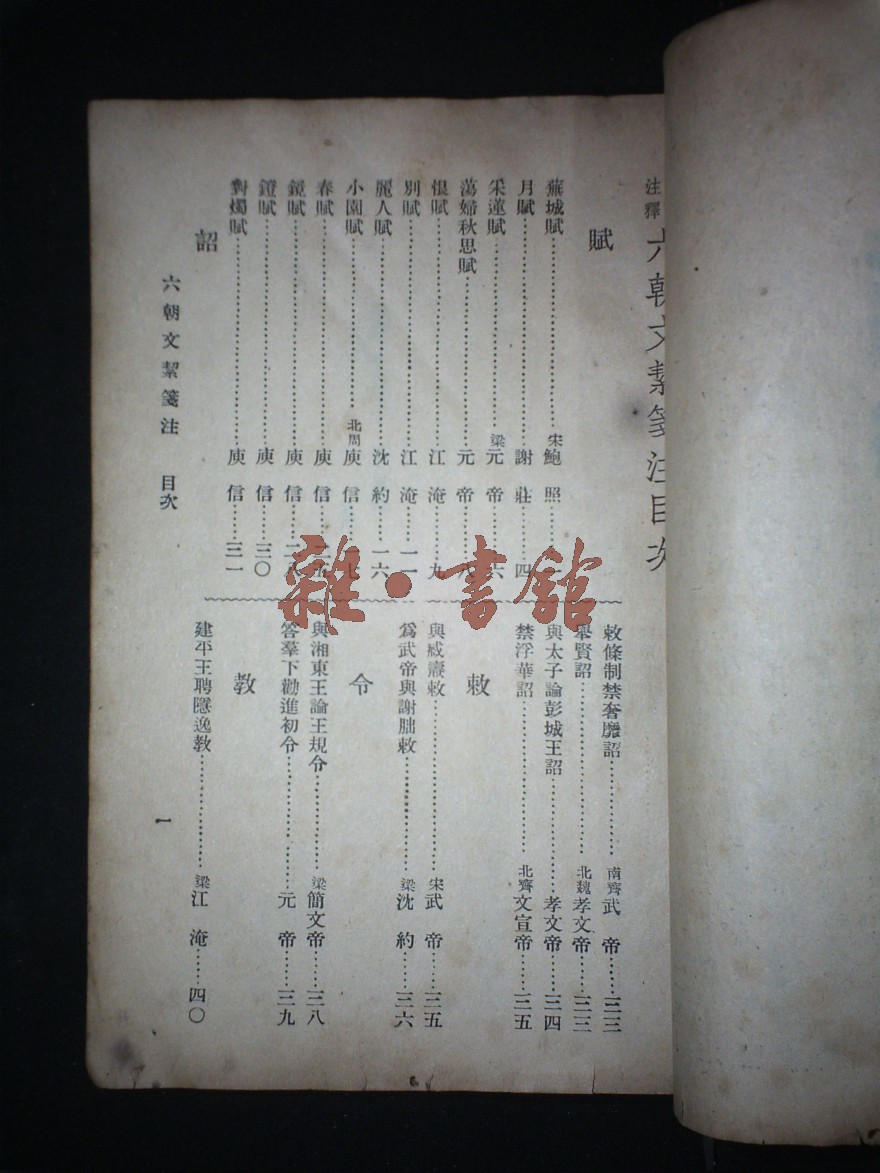 注釋 六朝文絜箋注目次
賦
蕪城賦……宋鮑照……
月賦……謝莊……四
采蓮賦……梁元帝……六
蕩婦秋思賦……元帝……八
恨賦……江淹……九
別賦……江淹……一一
麗人賦……沈約……一六
小園賦……北周庾信……一七
春賦……庾信……二五
鏡賦……庾信……二八
鐙賦……庾信……三〇
對燭賦……庾信……三一
詔
敕條制禁奢靡詔……南齊武帝……三三
舉賢詔……北魏孝文帝……三三
與太子論彭城王詔……孝文帝……三四
禁浮華詔……北齊文宣帝……三五
敕
與臧燾敕……宋武帝……三五
爲武帝與謝朏敕……梁沈約……三六
令
與湘東王論王規令……梁簡文帝……三八
答羣下勸進初令……元帝……三九
教
建平王聘隱逸教……梁江淹……四〇
六朝文絜箋注 目次
一
雜·書館